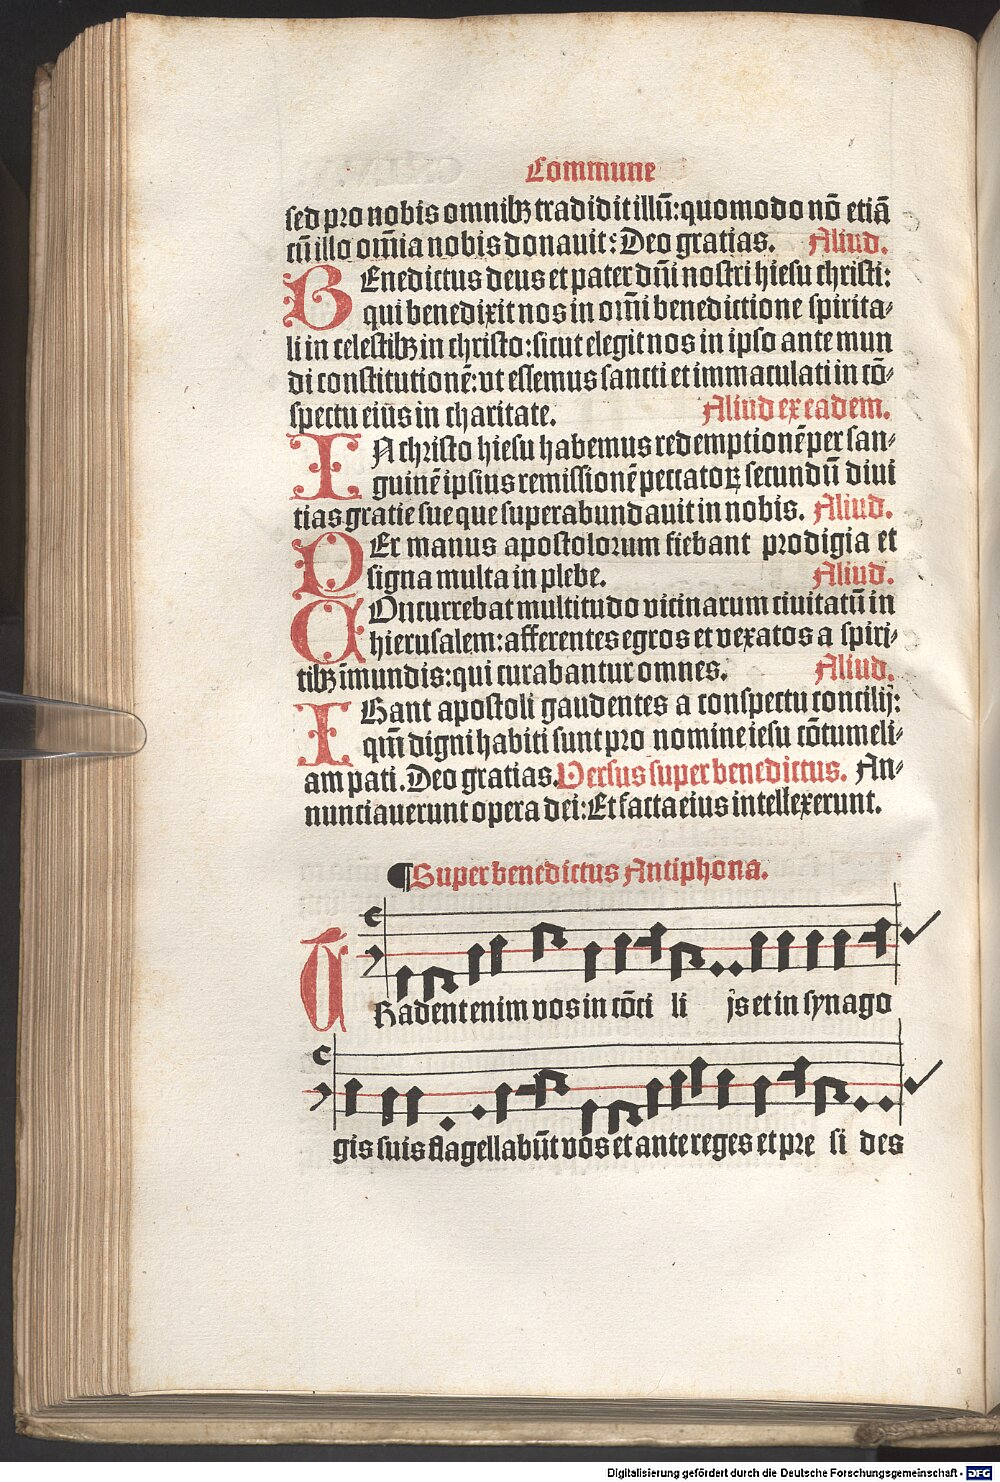 Commune
sed pro nobis omnibꝫ tradidit illū: quomodo nō etiā
cū illo om̄ia nobis donauit: Deo gratias. Aliud.
BEnedictus deus et pater dn̄i nostri hiesu christi:
qui benedixit nos in om̄i benedictione spirita-
li in celestibꝫ in christo: sicut elegit nos in ipso ante mun
di constitutionē: vt essemus sancti et immaculati in cō-
spectu eius in charitate. Aliud ex eadem.
IN christo hiesu habemus redemptionē per san-
guinē ipsius remissionē peccatoꝝ secundū diui
tias gratie sue que superabundauit in nobis. Aliud.
PEr manus apostolorum fiebant prodigia et
signa multa in plebe. Aliud.
COncurrebat multitudo vicinarum ciuitatū in
hierusalem: afferentes egros et vexatos a spiri-
tibꝫ īmundis: qui curabantur omnes. Aliud.
IBant apostoli gaudentes a conspectu concilij:
qm̄ digni habiti sunt pro nomine iesu cōtumeli-
am pati. Deo gratias. Versus super benedictus. An-
nunciauerunt opera dei: Et facta eius intellexerunt.
¶Super benedictus Antiphona.
TRadent enim vos in cōci li js et in synago
gis suis flagellabūt vos et ante reges et pre si des
Digitalisierung gefördert durch die Deutsche Forschungsgemeinschaft - DFG